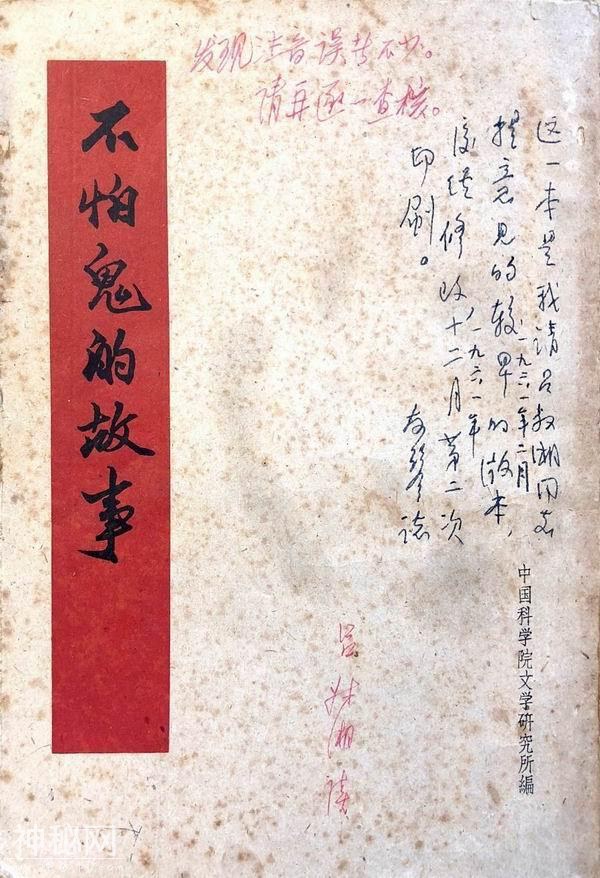 发现注音误者不少。
请再逐一查核。
不怕鬼的故事
这一本是我请吕叔湘同志
提意见的较早的版本，
一九六一年二月
後经修改十二月第二次
一九六一年
印刷。
友琴誌
吕叔湘读
中国科学院文学研究所編
神秘网